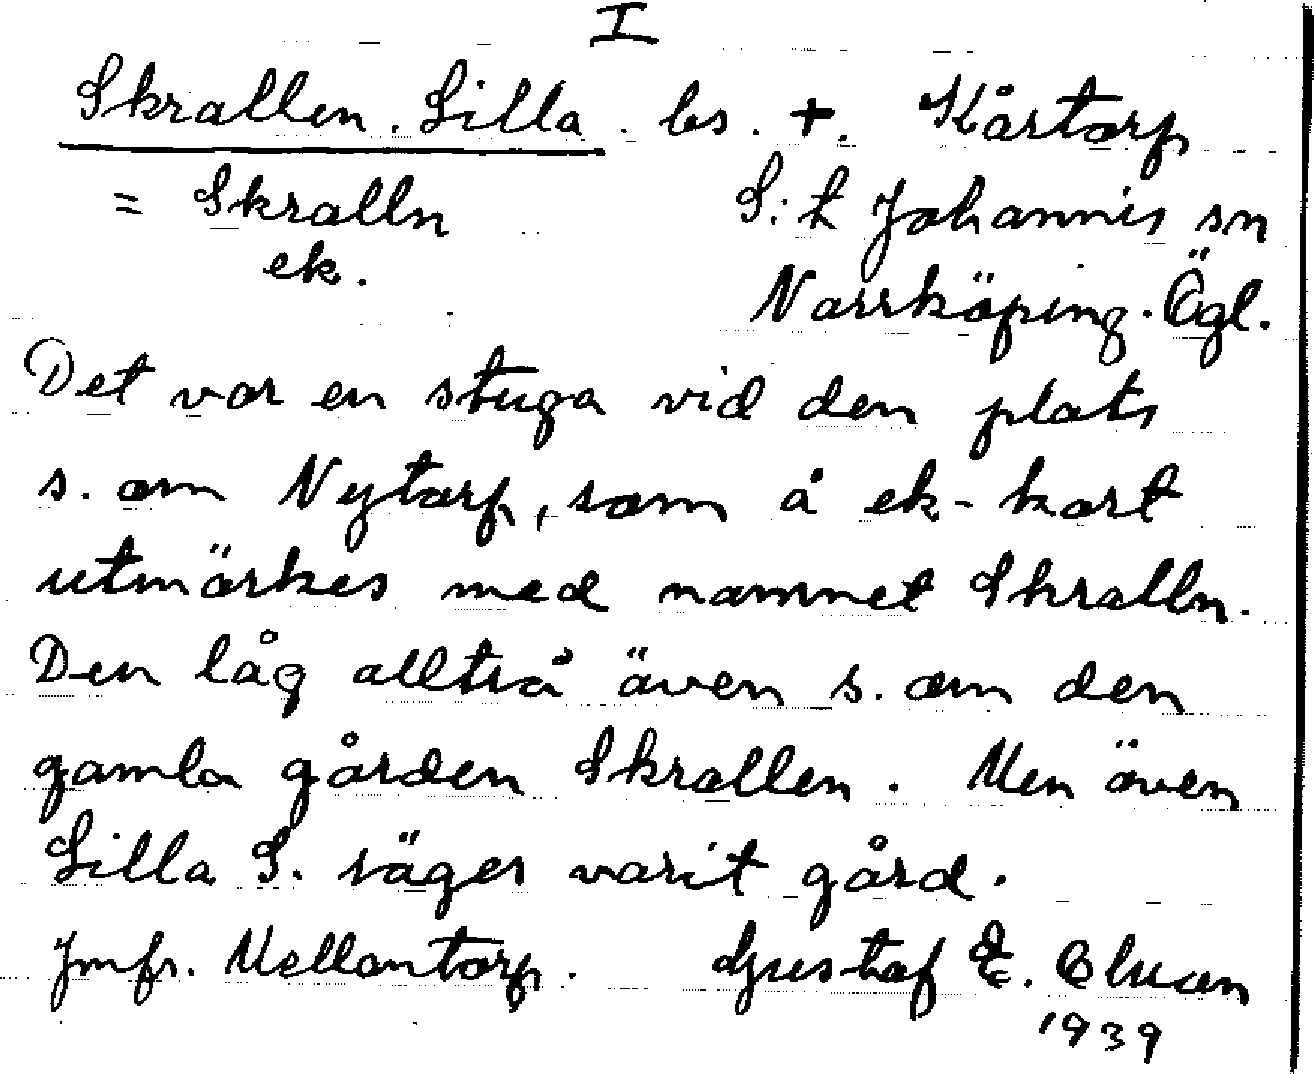 I
Skrallen. Lilla. bs. +. Kårtorp
= Skralln S:t Johannis sn
ek. Norrköping. Ögl.
Det var en stuga vid den plats
s. om Nytorp, som å ek-kart
utmärkes med namnet Skralln.
Den låg alltså även s. om den
gamla gården Skrallen. Men även
Lilla S. säges varit gård.
Jmfr. Mellantorp. Gustaf E.
1939